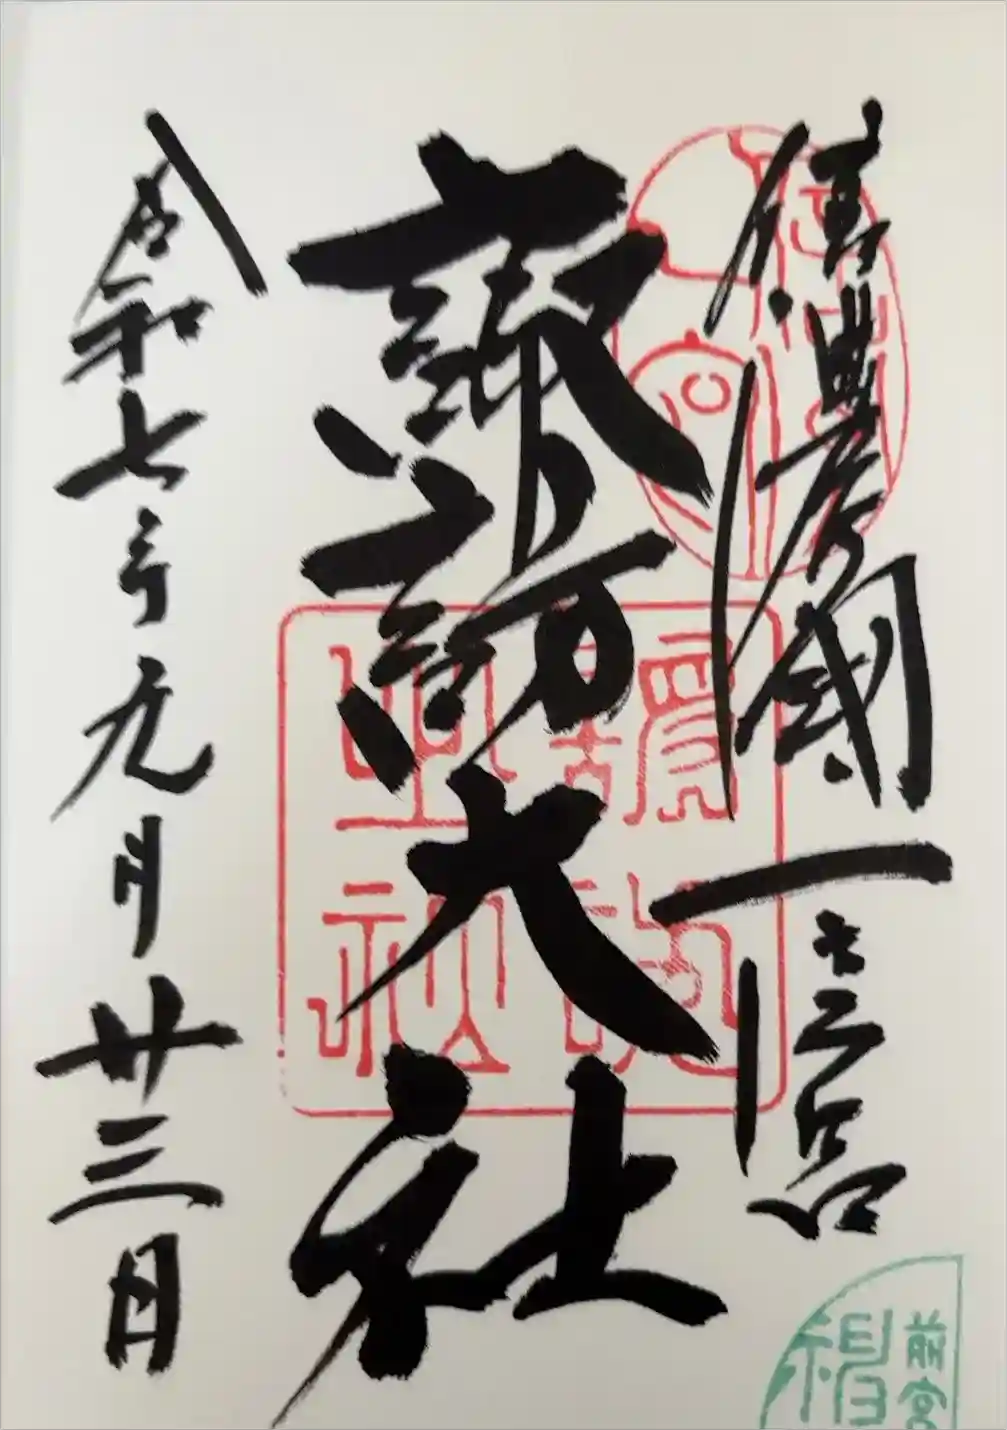 信濃國一之宮
諏訪大社
令和七年九月廿三日
前宮